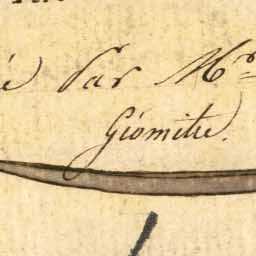 é Par Mr
Géomitre.